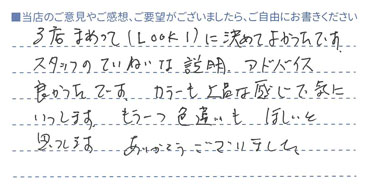 ■当店のご意見やご感想、ご要望がございましたら、ご自由にお書きください
3店まわって(LOOK1)に決めてよかったです。
スタッフのていねいな説明、アドバイス
良かったです。カラーも上品な感じで気に
いってます。もう一つ色違いも ほしいと
思ってます。 ありがとうございました